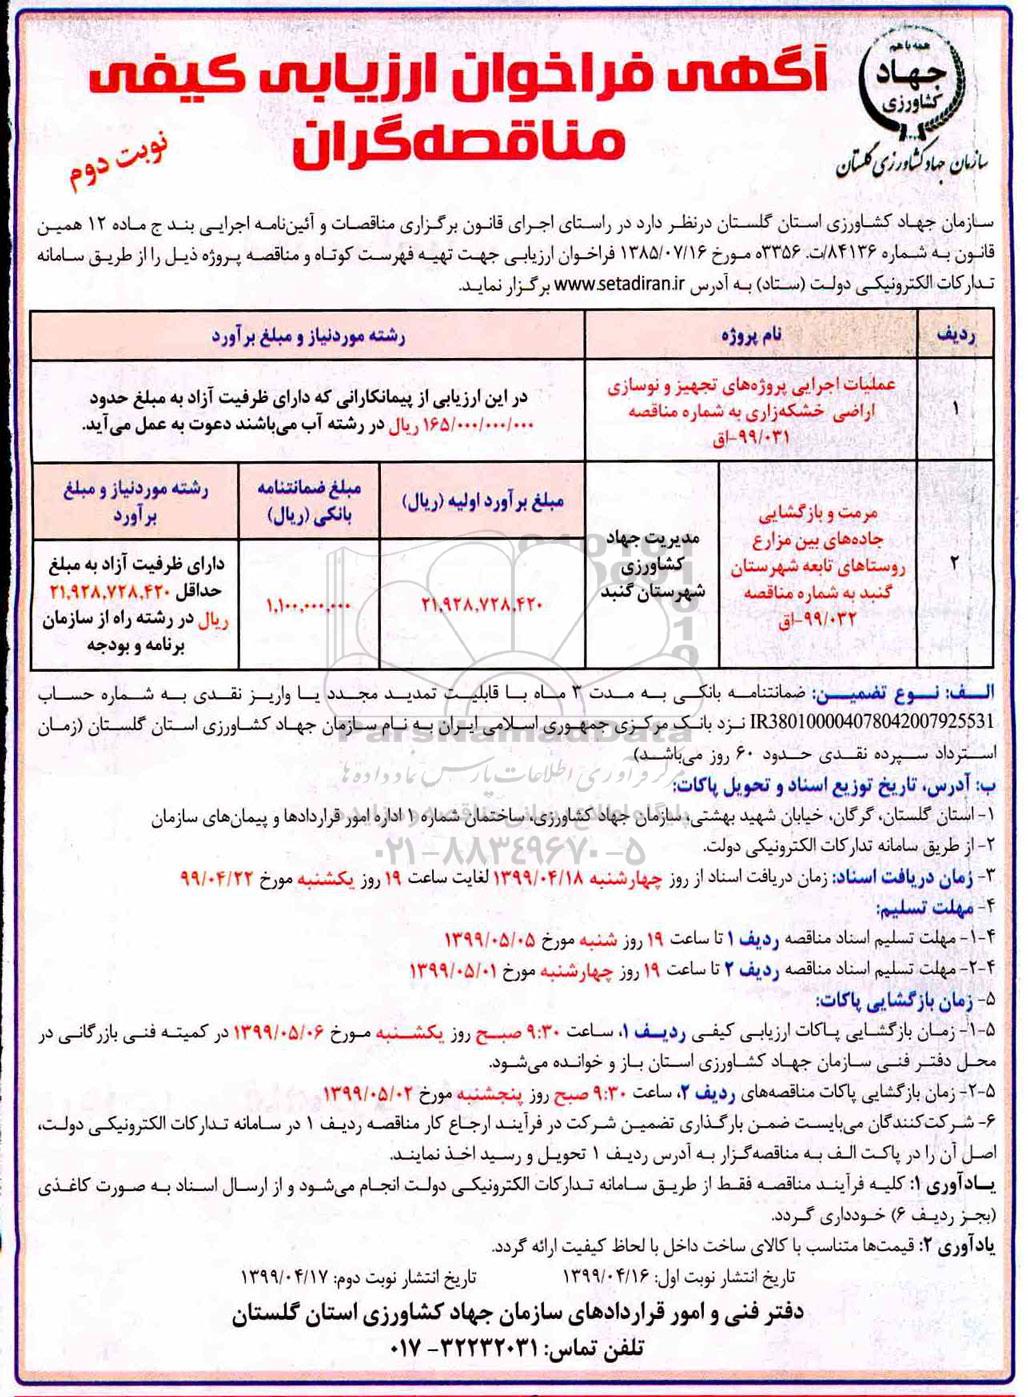 همه با هم
جهاد
کشاورزی
سازمان جهاد کشاورزی گلستان
آگهی فراخوان ارزیابی کیفی
مناقصه‌گران
نوبت دوم
سازمان جهاد کشاورزی استان گلستان درنظر دارد در راستای اجرای قانون برگزاری مناقصات و آئین‌نامه اجرایی بند ج ماده ۱۲ همین
قانون به شماره ۸۴۱۳۶/ت. ۳۳۵۶ه مورخ ۱۳۸۵/۰۷/۱۶ فراخوان ارزیابی جهت تهیه فهرست کوتاه و مناقصه پروژه ذیل را از طریق سامانه
تدارکات الکترونیکی دولت (ستاد) به آدرس www.setadiran.ir برگزار نماید.
ردیف
نام پروژه
رشته موردنیاز و مبلغ برآورد
۱
عملیات اجرایی پروژه‌های تجهیز و نوسازی
اراضی خشکه‌زاری به شماره مناقصه
۹۹/۰۳۱-اق
در این ارزیابی از پیمانکارانی که دارای ظرفیت آزاد به مبلغ حدود
۱۶۵/۰۰۰/۰۰۰/۰۰۰ ریال در رشته آب می‌باشند دعوت به عمل می‌آید.
۲
مرمت و بازگشایی
جاده‌های بین مزارع
روستاهای تابعه شهرستان
گنبد به شماره مناقصه
۹۹/۰۳۲-اق
مدیریت جهاد
کشاورزی
شهرستان گنبد
مبلغ برآورد اولیه (ریال)
۲۱,۹۲۸,۷۲۸,۴۲۰
مبلغ ضمانتنامه
بانکی (ریال)
۱,۱۰۰,۰۰۰,۰۰۰
رشته موردنیاز و مبلغ
برآورد
دارای ظرفیت آزاد به مبلغ
حداقل ۲۱,۹۲۸,۷۲۸,۴۲۰
ریال در رشته راه از سازمان
برنامه و بودجه
الف: نوع تضمین: ضمانتنامه بانکی به مدت ۳ ماه با قابلیت تمدید مجدد یا واریز نقدی به شماره حساب
IR380100004078042007925531 نزد بانک مرکزی جمهوری اسلامی ایران به نام سازمان جهاد کشاورزی استان گلستان (زمان
استرداد سپرده نقدی حدود ۶۰ روز می‌باشد)
ParsNamadData
مرکز فرآوری اطلاعات پارس نماد داده‌ها
ب: آدرس، تاریخ توزیع اسناد و تحویل پاکات:
۱- استان گلستان، گرگان، خیابان شهید بهشتی، سازمان جهاد کشاورزی، ساختمان شماره ۱ اداره امور قراردادها و پیمان‌های سازمان
۲- از طریق سامانه تدارکات الکترونیکی دولت.
۰۲۱-۸۸۳۴۹۶۷۰-۵
۳- زمان دریافت اسناد: زمان دریافت اسناد از روز چهارشنبه ۱۳۹۹/۰۴/۱۸ لغایت ساعت ۱۹ روز یکشنبه مورخ ۹۹/۰۴/۲۲
۴- مهلت تسلیم:
۴-۱- مهلت تسلیم اسناد مناقصه ردیف ۱ تا ساعت ۱۹ روز شنبه مورخ ۱۳۹۹/۰۵/۰۵
۴-۲- مهلت تسلیم اسناد مناقصه ردیف ۲ تا ساعت ۱۹ روز چهارشنبه مورخ ۱۳۹۹/۰۵/۰۱
۵- زمان بازگشایی پاکات:
۵-۱- زمان بازگشایی پاکات ارزیابی کیفی ردیف ۱، ساعت ۹:۳۰ صبح روز یکشنبه مورخ ۱۳۹۹/۰۵/۰۶ در کمیته فنی بازرگانی در
محل دفتر فنی سازمان جهاد کشاورزی استان باز و خوانده می‌شود.
۵-۲- زمان بازگشایی پاکات مناقصه‌های ردیف ۲، ساعت ۹:۳۰ صبح روز پنجشنبه مورخ ۱۳۹۹/۰۵/۰۲
۶- شرکت‌کنندگان می‌بایست ضمن بارگذاری تضمین شرکت در فرآیند ارجاع کار مناقصه ردیف ۱ در سامانه تدارکات الکترونیکی دولت،
اصل آن را در پاکت الف به مناقصه‌گزار به آدرس ردیف ۱ تحویل و رسید اخذ نمایند.
یادآوری ۱: کلیه فرآیند مناقصه فقط از طریق سامانه تدارکات الکترونیکی دولت انجام می‌شود و از ارسال اسناد به صورت کاغذی
(بجز ردیف ۶) خودداری گردد.
یادآوری ۲: قیمت‌ها متناسب با کالای ساخت داخل با لحاظ کیفیت ارائه گردد.
تاریخ انتشار نوبت اول: ۱۳۹۹/۰۴/۱۶ تاریخ انتشار نوبت دوم: ۱۳۹۹/۰۴/۱۷
دفتر فنی و امور قراردادهای سازمان جهاد کشاورزی استان گلستان
تلفن تماس: ۳۲۲۳۲۰۳۱-۰۱۷